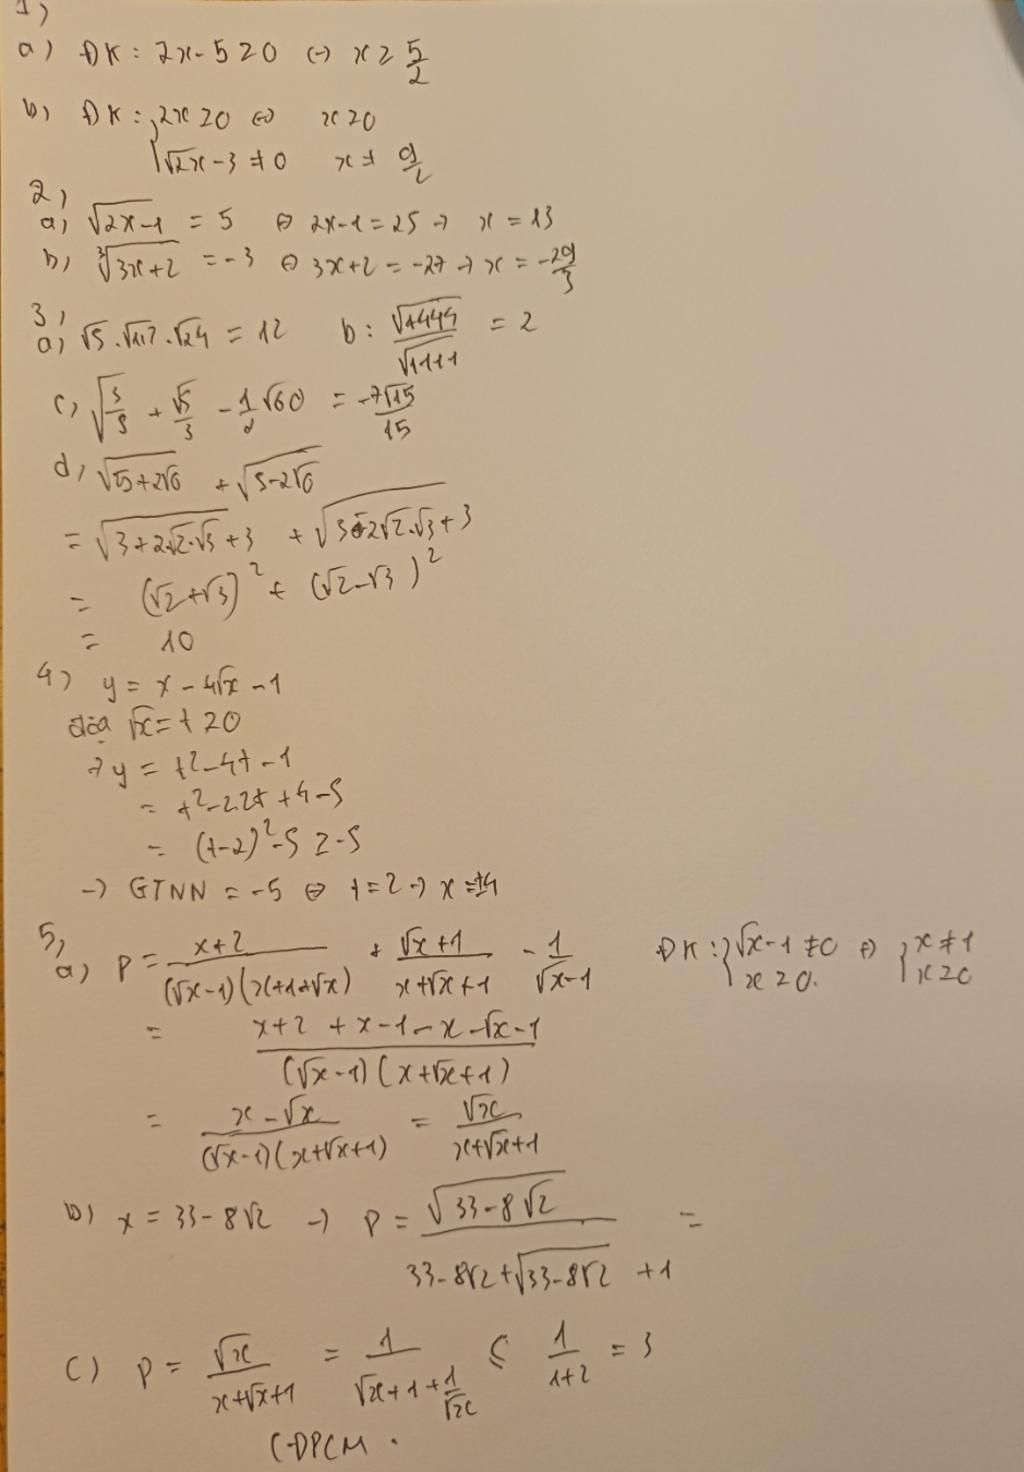 1)
a) ĐK: 2x-5≥0 ↔ x≥ 5/2
b) ĐK: { 2x≥0 ⇔ x≥0
√2x-3≠0 x≠ 9/2
2)
a) √(2x-1) = 5 ⇔ 2x-1=25 → x=13
b) ∛(3x+2) = -3 ⇔ 3x+2=-27 → x = -29/3
3)
a) √5.√1,2.√24 = 12 b: √4444/√1111 = 2
c) √(3/5) + √5/3 - 1/2 √60 = -7√15/15
d) √(5+2√6) + √(5-2√6)
= √(3+2√2.√3+3) + √(3-2√2.√3+3)
= (√2+√3)² + (√2-√3)²
= 10
4) y = x-4√x-1
đặt √x=t≥0
→ y = t²-4t-1
= t²-2.2t+4-5
= (t-2)²-5≥-5
→ GTNN = -5 ⇔ t=2 → x=4
5)
a) P = (x+2)/((√x-1)(x+1+√x)) + (√x+1)/(x+√x+1) - 1/(√x-1) ĐK: { √x-1≠0 ⇔ { x≠1
x≥0. x≥0
= (x+2+x-1-x-√x-1)/((√x-1)(x+√x+1))
= (x-√x)/((√x-1)(x+√x+1)) = √x/(x+√x+1)
b) x = 33-8√2 → P = √(33-8√2)/(33-8√2+√(33-8√2)+1) =
c) P = √x/(x+√x+1) = 1/(√x+1+1/√x) ≤ 1/(1+2) = 3
(ĐPCM.